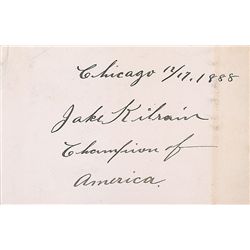 Chicago 12/17, 1888
Jake Kilrain
Champion of
America.